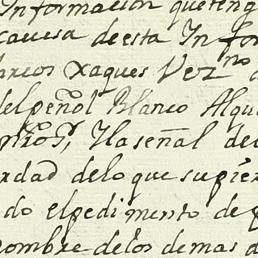 Informacion que teng
causa de esta Infor
arcos xaques Vez^no
del peñol Blanco Alqu
ntro S^r, Y la señal de
rdad de lo que supiér
do el pedimento de
nombre de los demas